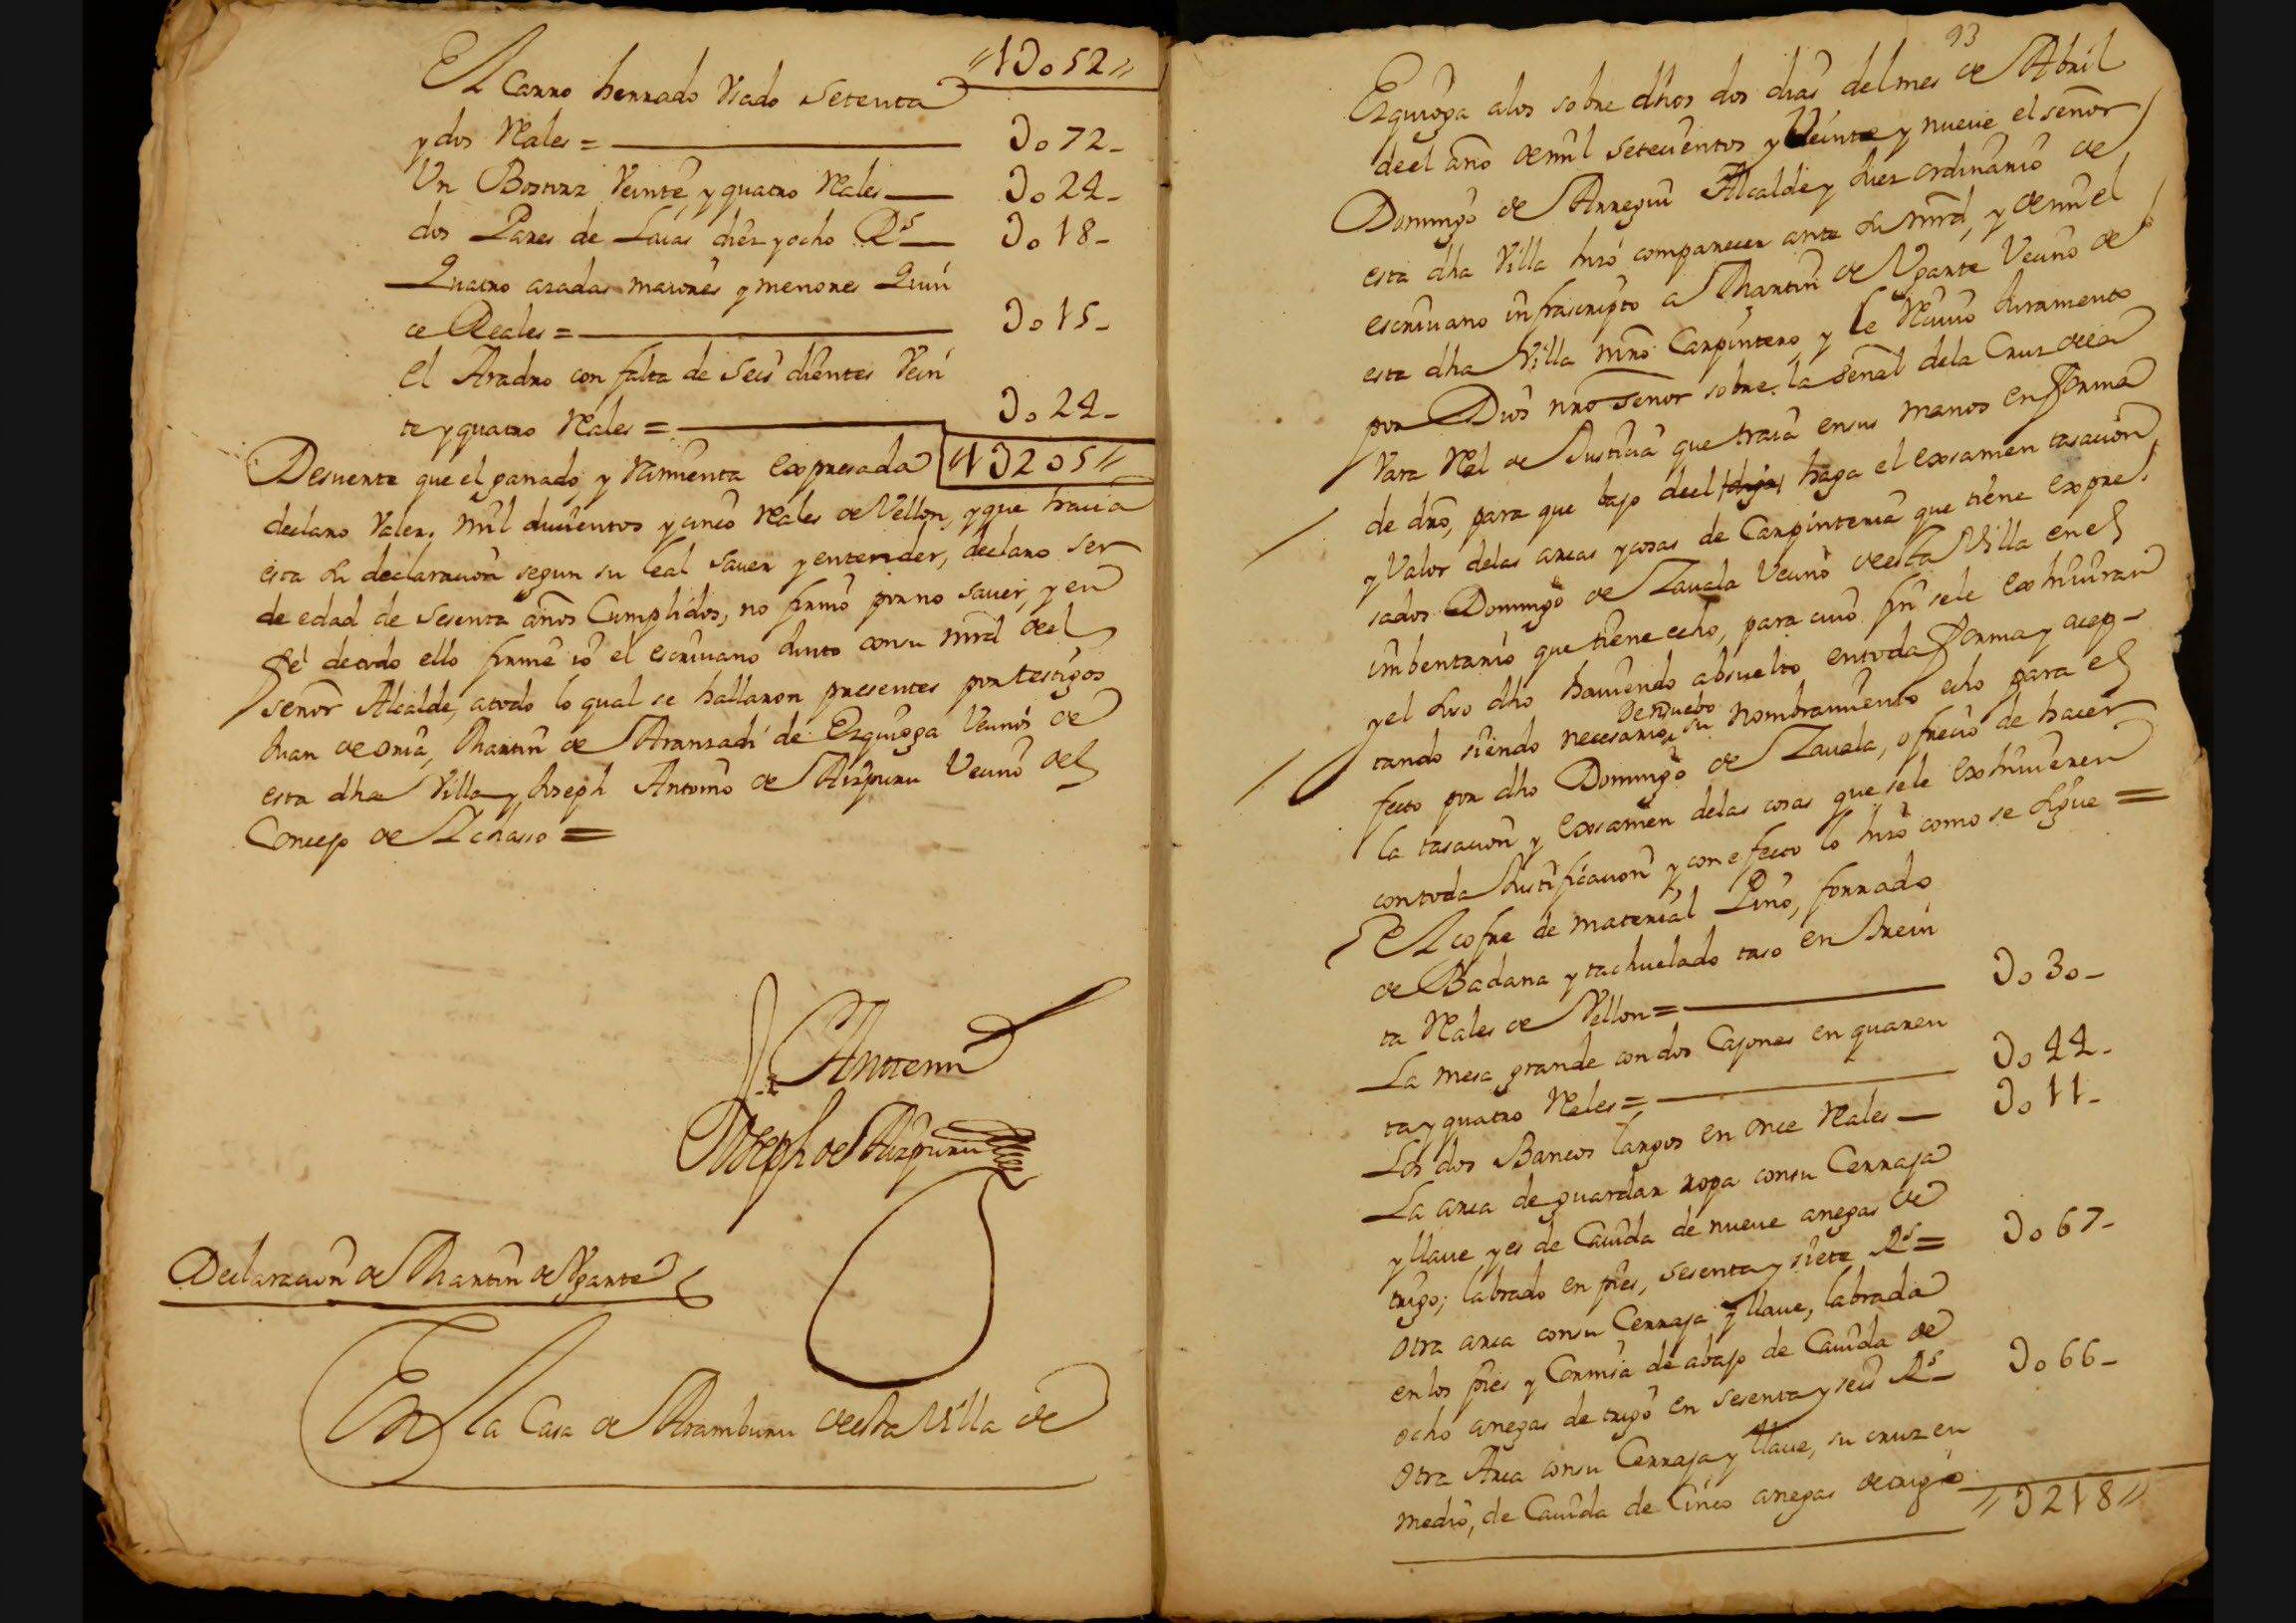 "1D052"
El Carro herrado Usado Setenta
y dos Rales = D072-
Un Bosturz Veinte, y quatro Rales D024-
dos Pares de Laias diez y ocho Rs D018-
Quatro azadas maiores y menores Quin
ce Reales = D015-
el Aradro con falta de Seis dientes Vein
te y quatro Rales = D024-
Desuerte que el ganado, y rarmienta expresada "1D205"
declaro Valer, mil ducientos y cinco Rales de Vellon, y que hacia
esta su declaracion segun su leal saver y entender, declaro ser
de edad de Sesenta años Cumplidos, no firmó por no saver, y en
fe de todo ello firmé io el escrivano Junto con su mrd del
señor Alcalde, a todo lo qual se hallaron presentes por testigos
Juan de oria, Martin de Aranzadi de Ezquioga Vecinos de
esta dha Villa y Joseph Antonio de Aizpuru Vecino del
Concejo de Ichasso =
Anttemi
Joseph de Aizpuru
Declaracion de Martin de Ugarte
En la Casa de Aramburu de esta Villa de
93
Ezquioga a los sobre dhos dos dias del mes de Abril
de el año de mil Setecientos y Veinte y nueve el señor
Domingo de Arregui Alcalde y Juez ordinario de
esta dha Villa hizo comparecer ante su mrd, y de mi el
escrivano infrascripto a Martin de Ugarte Vecino de
esta dha Villa mro Carpintero, y le Recivio Juramento
por Dios nro señor sobre la señal de la Cruz de la
Vara Rel de Justicia que traia en sus manos en forma
de dro, para que bajo de el haga el examen tasacion
y Valor de las arcas y cosas de Carpinteria que tiene expre,
sados Domingo de Zavala Vecino de esta Villa en el
imbentario que tiene echo, para cuio fin se le exhiviran
y el suso dho haviendo absuelto en toda forma y acep-
tando siendo necesario, De nuebo su nombramiento echo para el
fecto por dho Domingo de Zavala, ofrecio de hacer
la tasacion y exsamen de las cosas que se le exhivieren
con toda Justificacion y con efecto lo hizo como se sigue =
El cofre de material Pino, forrado
de Badana y tachuelado taso en trein
ta Rales de Vellon = D030-
La mesa grande con dos Cajones en quaren
ta y quatro Rales = D044-
Los dos Bancos largos en once Rales D011-
La arca de guardar ropa con su Cerraja
y llave y es de Cavida de nueve anegas de
trigo; labrado en pies, sesenta y siete Rs = D067-
Otra arca con su Cerraja y llave, labrada
en los pies y Cornisa de abajo de Cavida de
ocho anegas de trigo en Sesenta y seis Rs D066-
Otra Arca con su Cerraja y llave, su cruz en
medio, de Cavida de Cinco anegas de trigo
"D218"